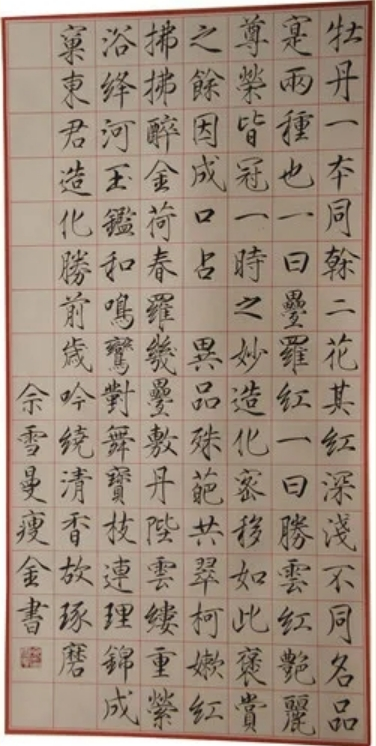 牡丹一本同榦二花其紅深淺不同名品
寔兩種也一曰疊羅紅一曰勝雲紅艷麗
尊榮皆冠一時之妙造化宻移如此褒賞
之餘因成口占 異品殊葩共翠柯嫩紅
拂拂醉金荷春羅幾疊敷丹陛雲縷重縈
浴絳河玉鑑和鳴鸞對舞寶枝連理錦成
窠東君造化勝前歲吟繞清香故琢磨
佘雪曼瘦金書